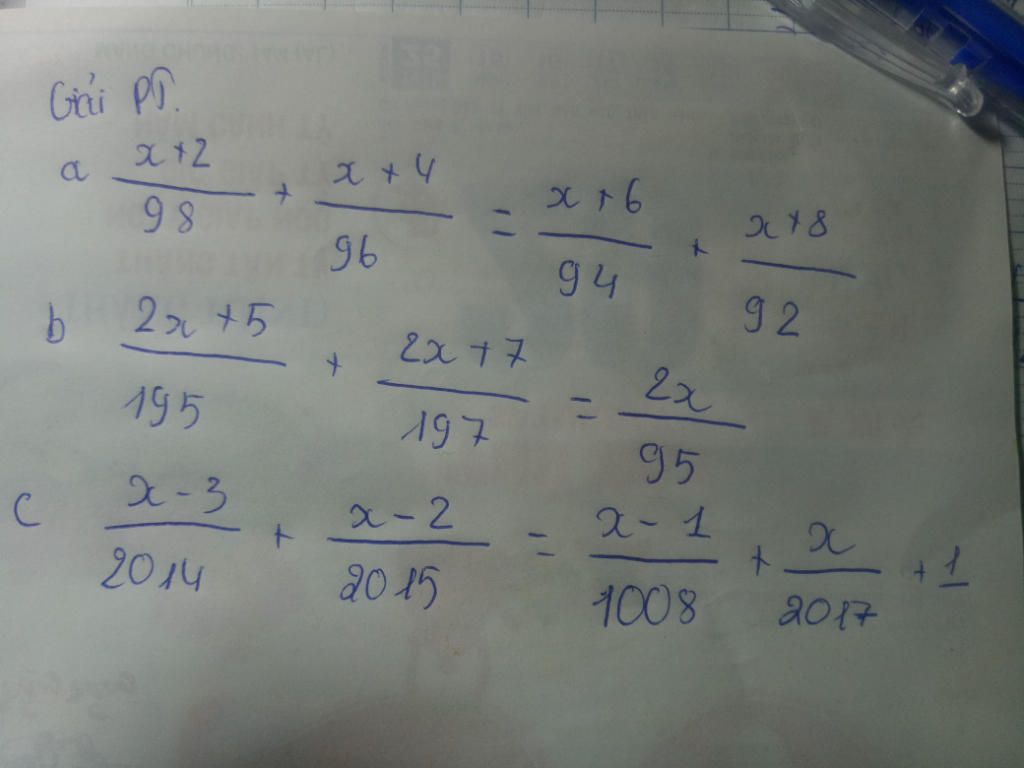 Giải PT.
a \frac{x+2}{98} + \frac{x+4}{96} = \frac{x+6}{94} + \frac{x+8}{92}
b \frac{2x+5}{195} + \frac{2x+7}{197} = \frac{2x}{95}
c \frac{x-3}{2014} + \frac{x-2}{2015} = \frac{x-1}{1008} + \frac{x}{2017} + 1